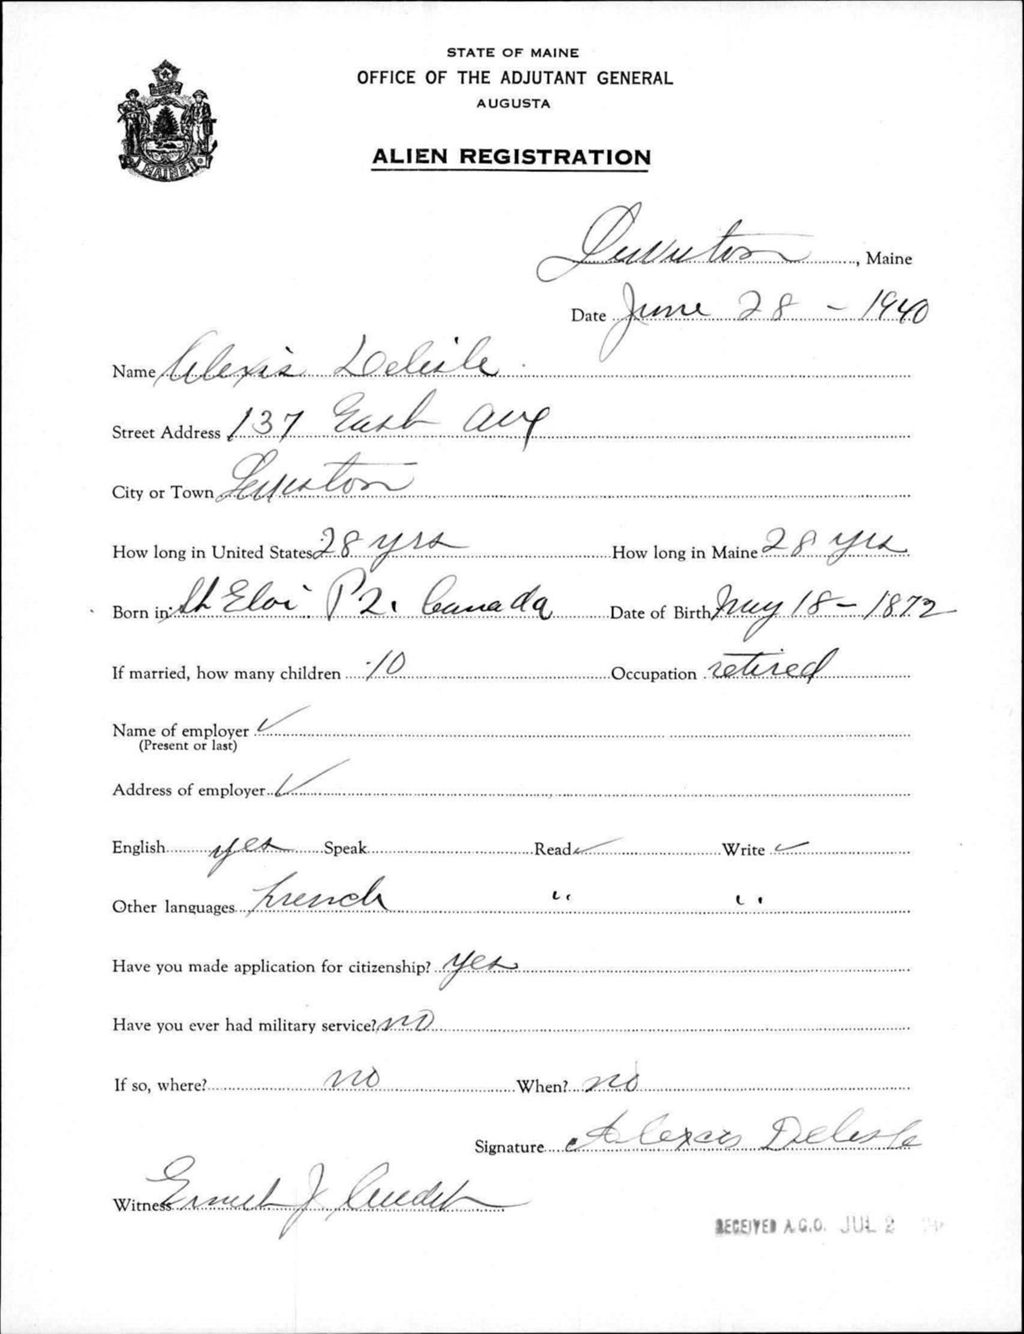 STATE OF MAINE
OFFICE OF THE ADJUTANT GENERAL
AUGUSTA
MAINE
ALIEN REGISTRATION
Lewiston, Maine
Date June 28 - 1940
Name Alexis Delisle
Street Address 137 East Ave
City or Town Lewiston
How long in United States 28 yrs How long in Maine 28 yrs
Born in St Eloi P2. Canada Date of Birth May 18 - 1872
If married, how many children 10 Occupation retired
Name of employer ✓
(Present or last)
Address of employer ✓
English yes Speak Read ✓ Write ✓
Other languages french " "
Have you made application for citizenship? yes
Have you ever had military service? no
If so, where? no When? no
Signature Alexis Delisle
Witness Ernest J
RECEIVED A.G.O. JUL 2